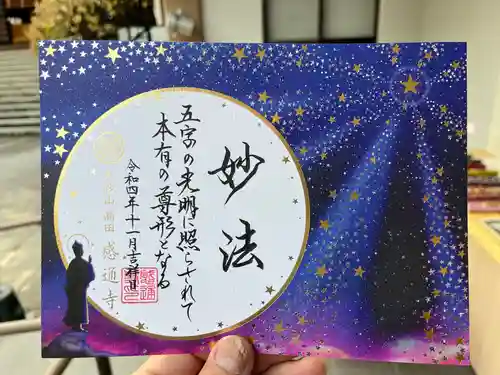 妙法
五字の光明に照らされて
本有の尊形となる
令和四年十一月吉祥日
感通寺